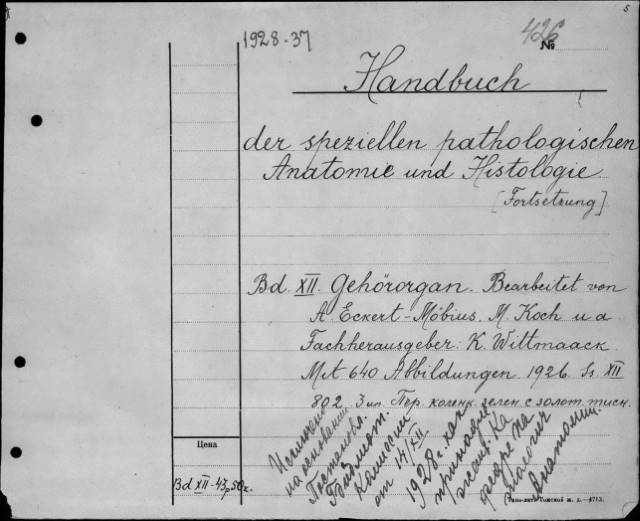 5
1928-37
426
№
Handbuch
der speziellen pathologischen
Anatomie und Histologie
[Fortsetzung]
Bd. XII. Gehörorgan. Bearbeitet von
A. Eckert-Möbius. M. Koch u a
Fachherausgeber: K. Wittmaack
Mit 640 Abbildungen. 1926. Ss. XII
802. 3 ил. Пер. коленк. зелен. с золот. тисн.
Цена
Bd XII - 43 р 50 к.
Исключено
на основании
Постановл.
Библиот.
Комиссии
от 14/XII
1928 г. как
принадле
жащ. Ка
федре Па
тологич
Анатомии.
Томской ж. д. -4713.